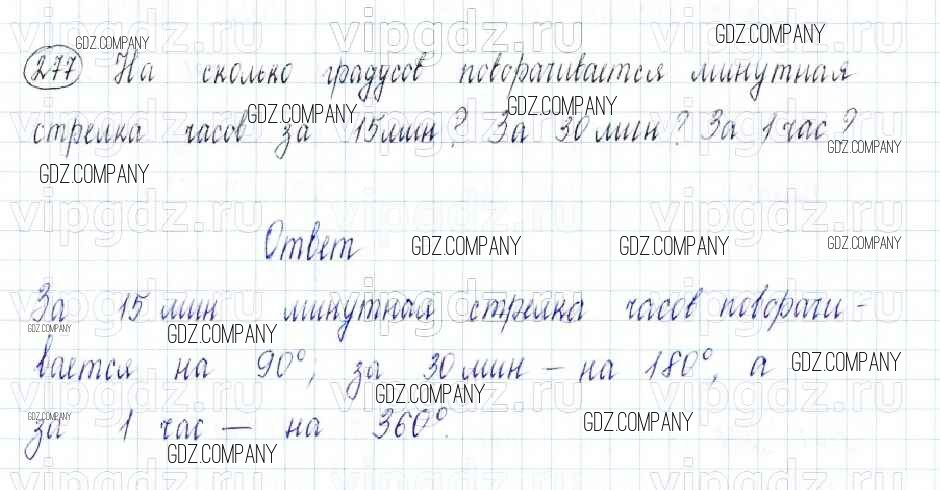 vipgdz.ru vipgdz.ru vipgdz.ru
GDZ.COMPANY GDZ.COMPANY
277 На сколько градусов поворачивается минутная
GDZ.COMPANY GDZ.COMPANY
стрелка часов за 15 мин? За 30 мин? За 1 час?
GDZ.COMPANY GDZ.COMPANY
vipgdz.ru vipgdz.ru vipgdz.ru
Ответ GDZ.COMPANY GDZ.COMPANY GDZ.COMPANY
За 15 мин минутная стрелка часов поворачи-
vipgdz.ru vipgdz.ru vipgdz.ru
GDZ.COMPANY GDZ.COMPANY
вается на 90°, за 30 мин – на 180°, а GDZ.COMPANY
GDZ.COMPANY
GDZ.COMPANY GDZ.COMPANY
за 1 час – на 360°.
GDZ.COMPANY
vipgdz.ru vipgdz.ru vipgdz.ru